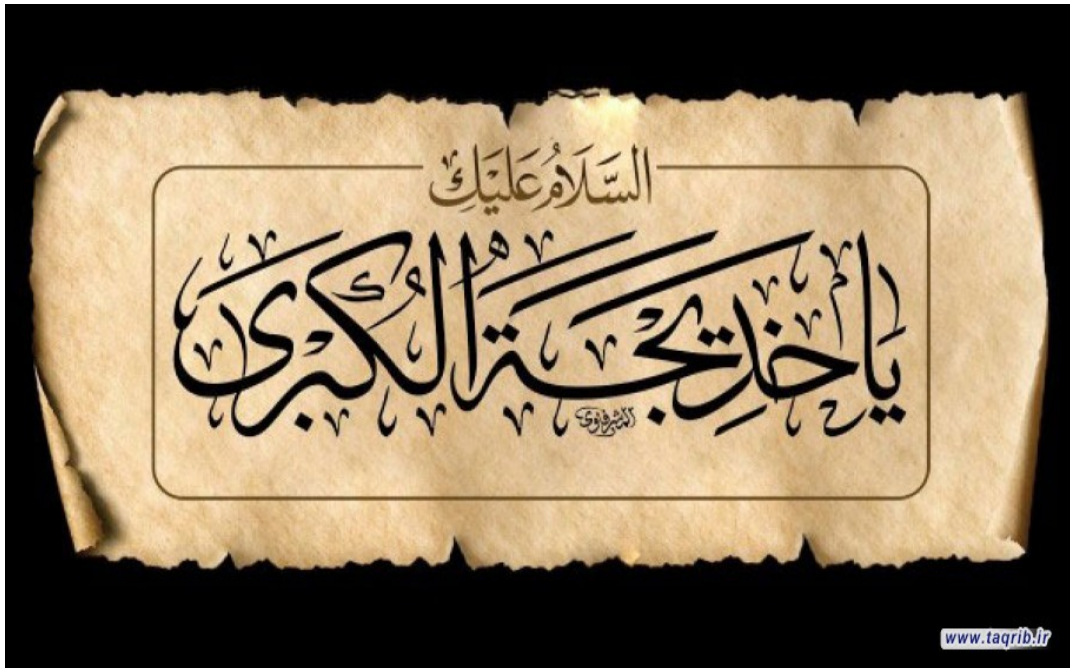 السَّلَامُ عَلَيْكِ
يَا خَدِيجَةُ الْكُبْرَى
www.taqrib.ir